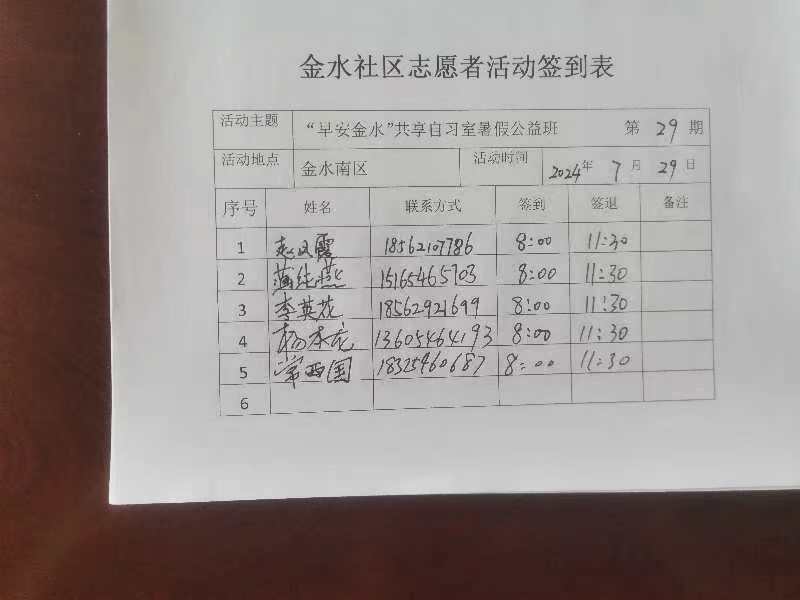 金水社区志愿者活动签到表
活动主题 “早安金水”共享自习室暑假公益班 第 29 期
活动地点 金水南区 活动时间 2024年 7 月 29 日
序号 姓名 联系方式 签到 签退 备注
1 赵凤霞 18562107786 8:00 11:30
2 15165465703 8:00 11:30
3 李英花 18562921699 8:00 11:30
4 杨本龙 13605464193 8:00 11:30
5 常西国 18325460687 8:00 11:30
6